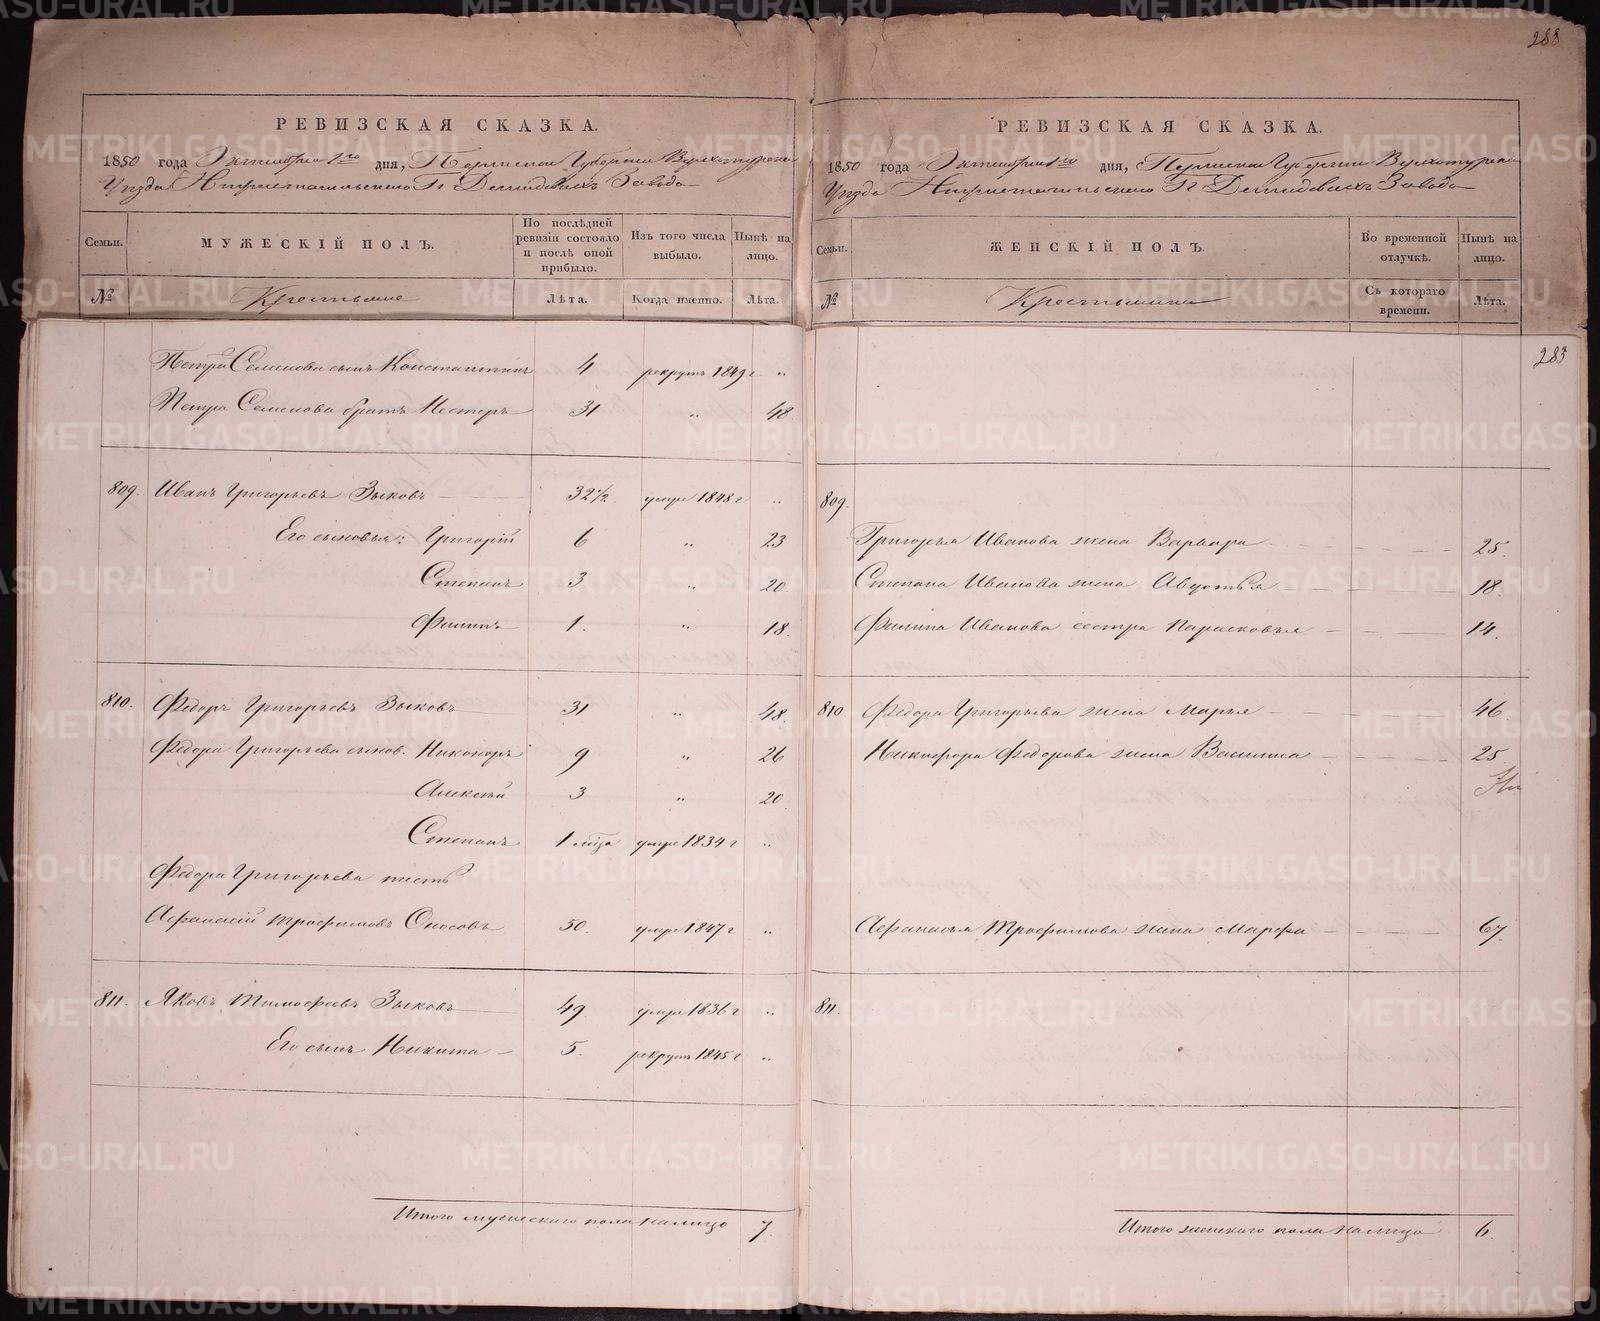 288
РЕВИЗСКАЯ СКАЗКА.
1850 года Октября 1го дня, Пермской Губернiи Верхотурска
Уѣзда Нижнетагильскаго Гг Демидовыхъ Завода
Семьи.
МУЖЕСКІЙ ПОЛЪ.
По послѣдней ревизіи состояло и послѣ оной прибыло.
Изъ того числа выбыло.
Нынѣ на лицо.
№
Крестьяне
Лѣта.
Когда именно.
Лѣта.
Петра Семенова сынъ Константинъ 4 рекрутъ 1849 г "
Петра Семенова братъ Нестеръ 31 " 48
809. Иванъ Григорьевъ Зыковъ 32½ умре 1848 г "
Его сыновья: Григорій 6 " 23
Степанъ 3 " 20.
Филипъ 1. " 18.
810. Федоръ Григорьевъ Зыковъ 31 " 48.
Федора Григорьева сынов. Никифоръ 9 " 26
Алексѣй 3 " 20
Степанъ 1 мѣсца умре 1834 г "
Федора Григорьева тесть
Афанасій Трофимовъ Оносовъ 50. умре 1847 г "
811. Яковъ Тимофеевъ Зыковъ 49 умре 1836 г "
Его сынъ Никита 5. рекрутъ 1845 г "
Итого мужескаго пола налицо 7.
РЕВИЗСКАЯ СКАЗКА.
1850 года Октября 1го дня, Пермской Губернiи Верхотурска
Уѣзда Нижнетагильскаго Гг Демидовыхъ Завода
Семьи.
ЖЕНСКІЙ ПОЛЪ.
Во временной отлучкѣ.
Нынѣ на лицо.
№
Крестьянки
Съ котораго времени.
Лѣта.
283
809.
Григорья Иванова жена Варвара 25.
Степана Иванова жена Авдотья 18.
Филипа Иванова сестра Парасковья 14.
810 Федора Григорьева жена Марья 46
Никифора Федорова жена Василиса 25
Афанасья Трофимова жена Марфа 67.
811.
Итого женскаго пола налицо 6.
METRIKI.GASO-URAL.RU